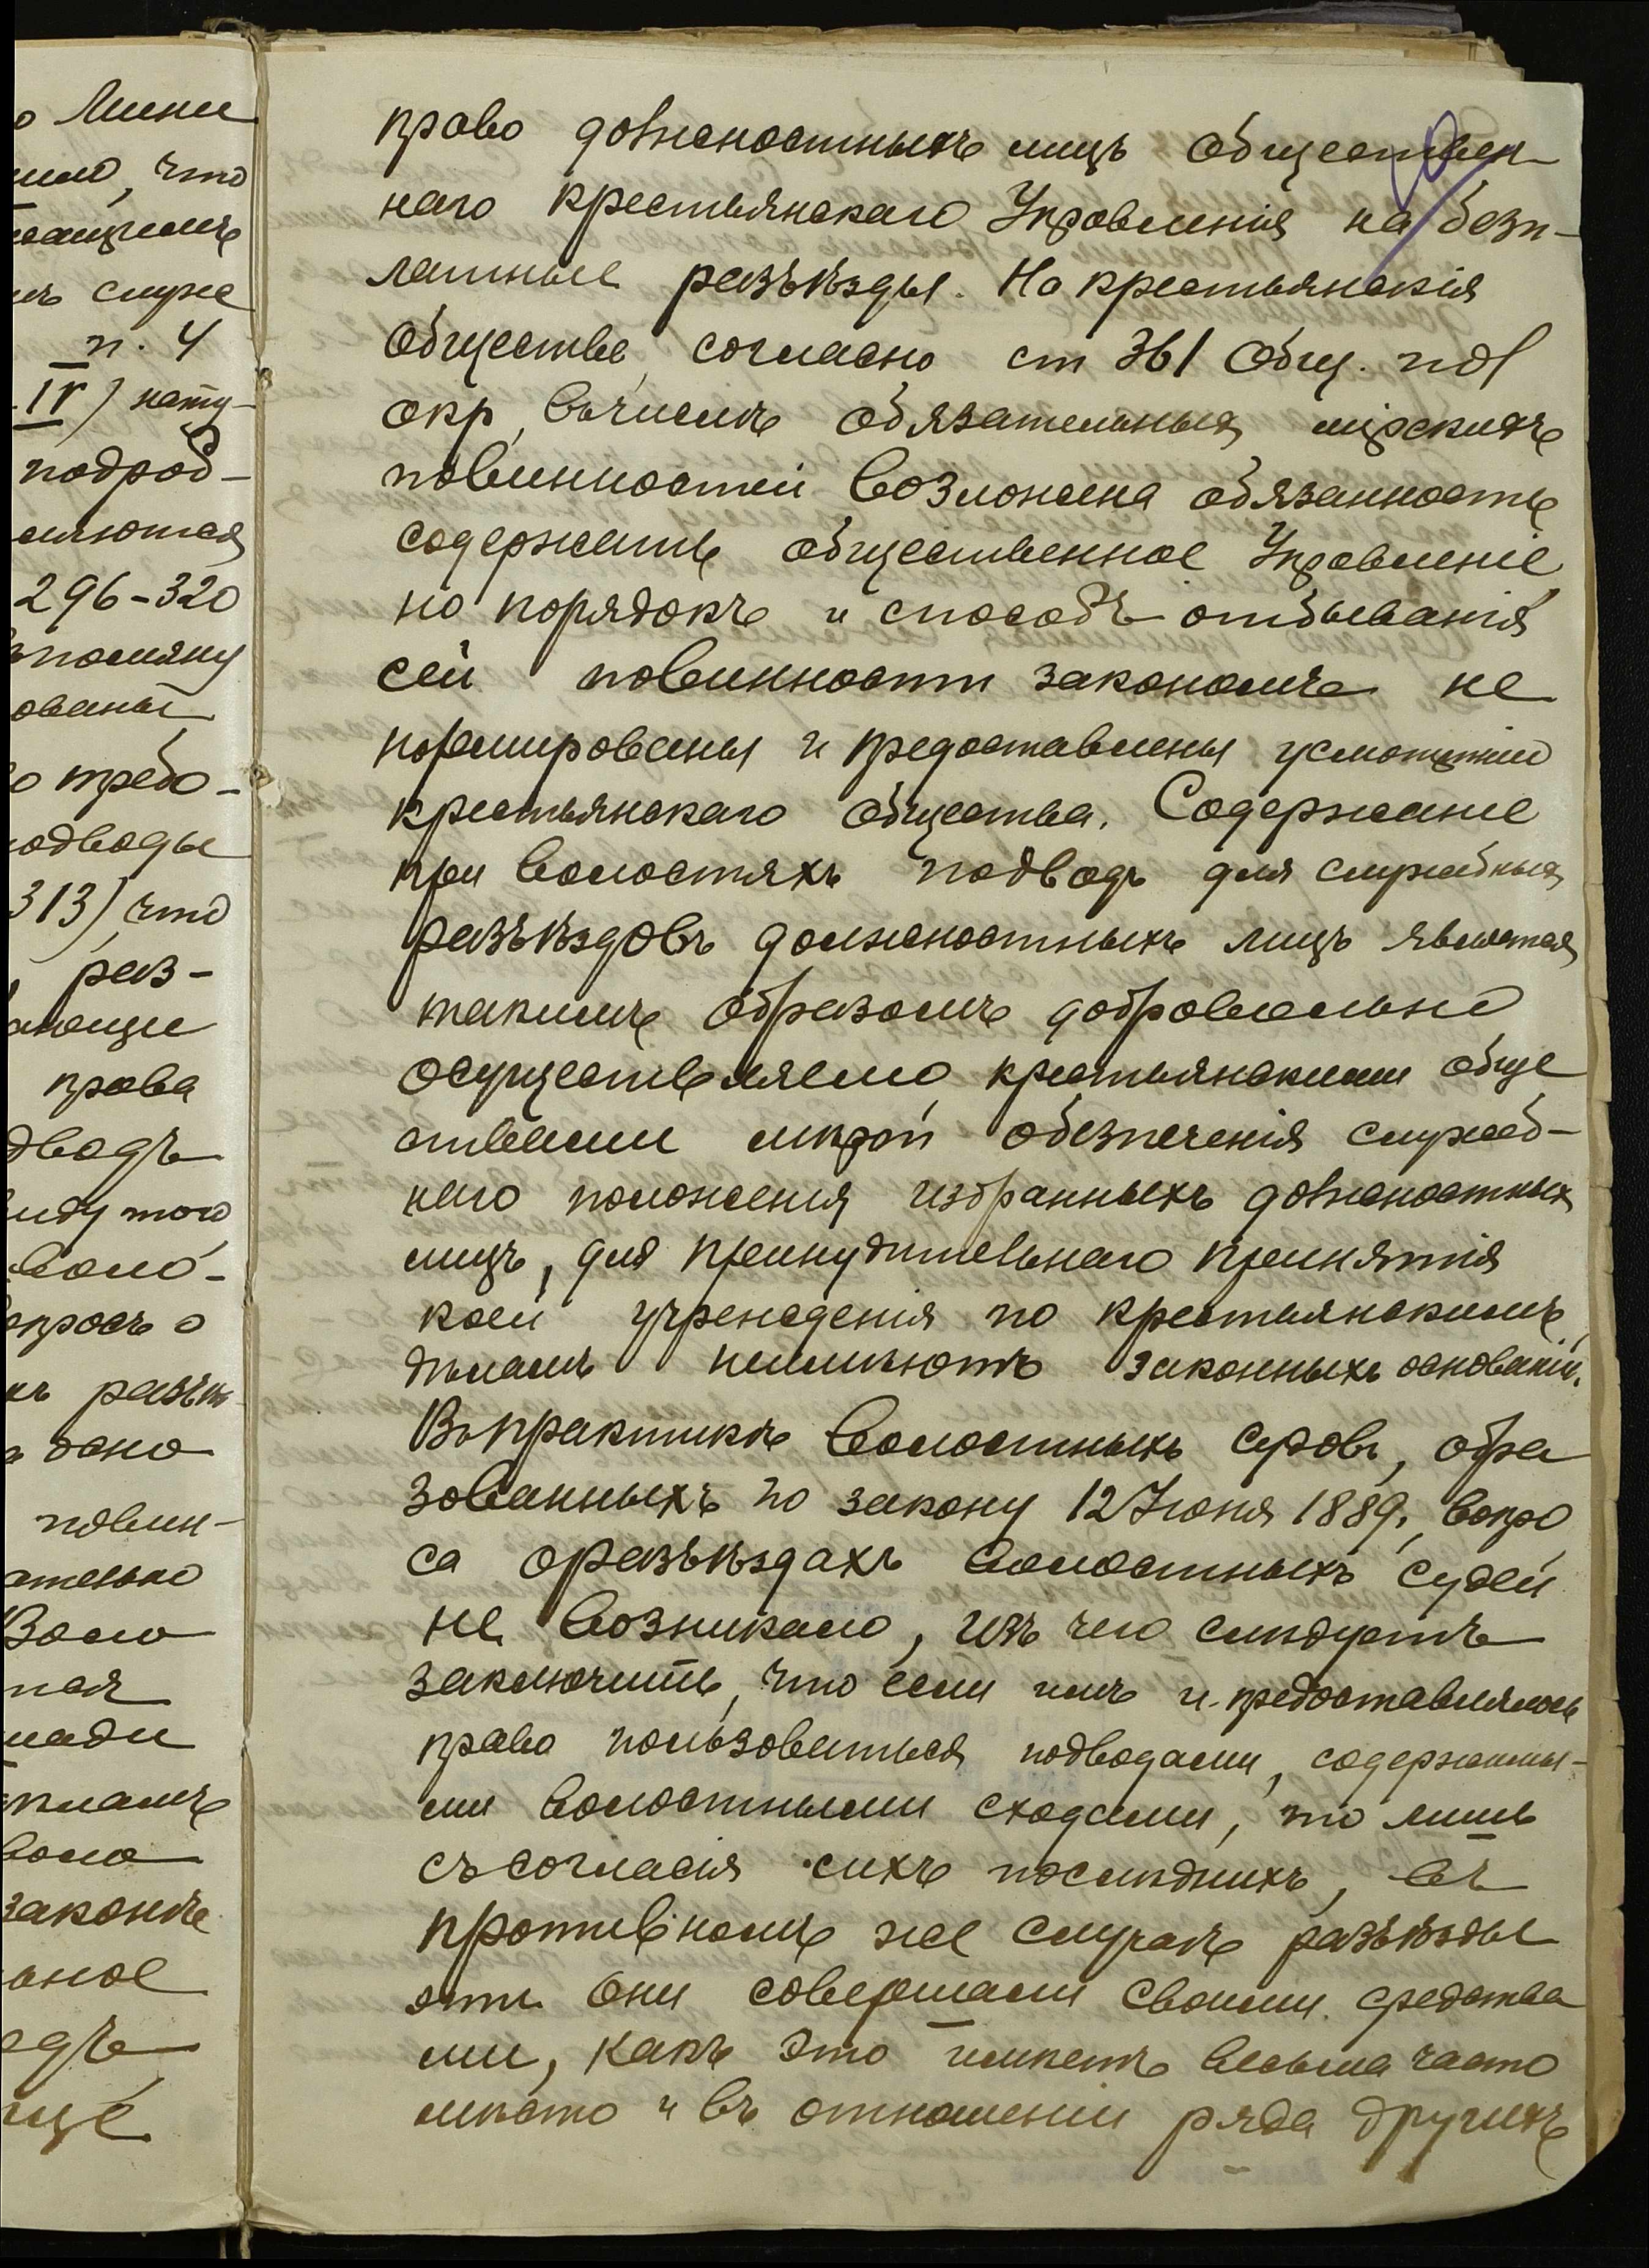 право должностныхъ лицъ обществен
наго крестьянскаго Управленія на безп-
латные разъѣзды. На крестьянскія
общества, согласно ст 361 общ. пол
о кр, въ числѣ обязательныхъ мірскихъ
повинностей возложена обязанность
содержать общественное Управленіе,
но порядокъ и способъ отбыванія
сей повинности закономъ не
нормированы и предоставлены усмотрѣнію
крестьянскаго общества. Содержаніе
при волостяхъ подводъ для служебныхъ
разъѣздовъ должностныхъ лицъ является
такимъ образомъ добровольно
осуществляемо крестьянскими обще
ствами мѣрой обезпеченія служеб-
наго положенія избранныхъ должностныхъ
лицъ, для принудительнаго принятія
коей учрежденія по крестьянскимъ
дѣламъ неимѣютъ законныхъ основаній.
Въ практикѣ волостныхъ судовъ, обра
зованныхъ по закону 12 Іюня 1889, вопро
са о разъѣздахъ волостныхъ судей
не возникало, изъ чего слѣдуетъ
заключить, что если имъ и предоставлялось
право пользоваться подводами, содержимы-
ми волостными сходами, то лишь
съ согласія сихъ послѣднихъ, въ
противномъ же случаѣ разъѣзды
эти они совершали своими средства
ми, какъ это имѣетъ весьма часто
мѣсто и въ отношеніи ряда другихъ